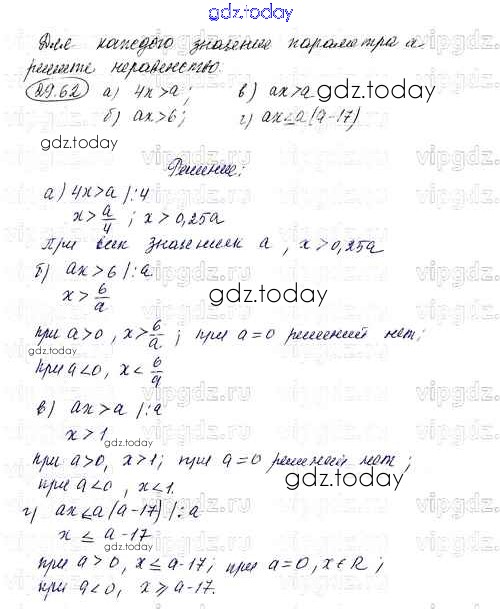 gdz.today
Для каждого значение параметра а
решите неравенство.
29.62 а) 4x>a; в) ax>a
б) ax>6; г) ax≤a(a-17)
gdz.today
gdz.today
Решение:
а) 4x>a |:4
x> a/4 ; x>0,25a
При всех значениях a, x>0,25a
б) ax>6 |:a
x> 6/a
gdz.today
при a>0, x> 6/a ; при a=0 решений нет;
gdz.today
при a<0, x< 6/a
в) ax>a |:a
x>1
gdz.today
при a>0, x>1; при a=0 решений нет;
при a<0, x<1.
gdz.today
г) ax≤a(a-17) |:a
x ≤ a-17
gdz.today
при a>0, x≤a-17; при a=0, x∈R;
при a<0, x⩾a-17.